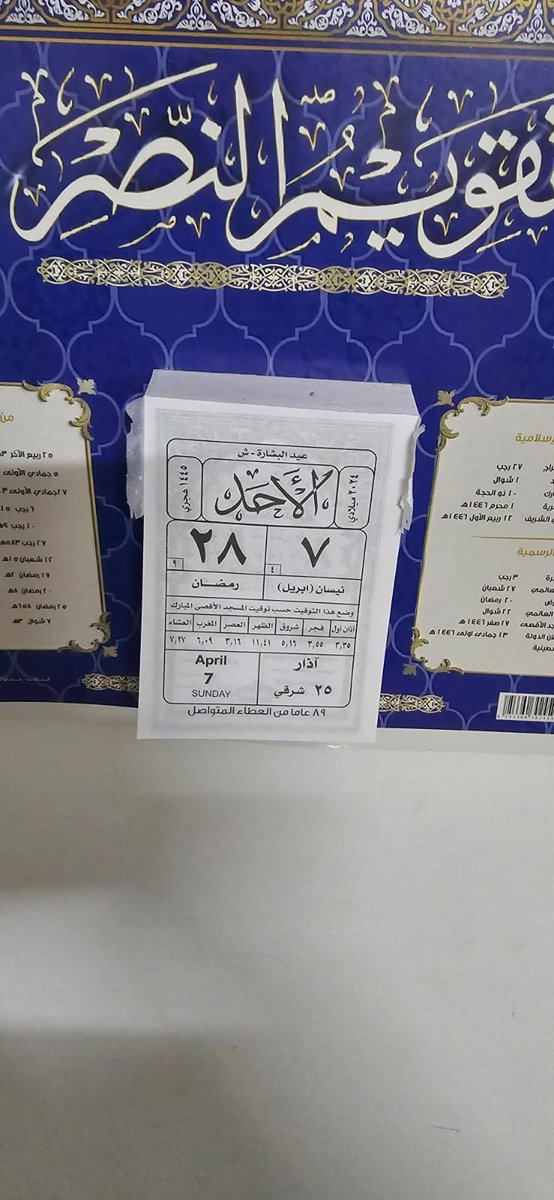 تقويم النصر
عيد البشارة - ش
١٤٤٥ هجري
الأحد
٢٠٢٤ ميلادي
٧
٤
٢٨
٩
نيسان (ابريل)
رمضان
وضع هذا التوقيت حسب توقيت المسجد الأقصى المبارك
أذان أول فجر شروق الظهر العصر المغرب العشاء
٣,٣٥ ٣,٥٥ ٥,١٦ ١١,٤١ ٣,١٦ ٦,٠٩ ٧,٢٧
آذار
٢٥ شرقي
April
7
SUNDAY
٨٩ عاما من العطاء المتواصل
٢٧ رجب
١ شوال
١٠ ذو الحجة
١ محرم ١٤٤٦هـ
١٢ ربيع الأول ١٤٤٦هـ
٣ رجب
٢٧ شعبان
٢٠ رمضان
٢٢ شوال
١٧ صفر ١٤٤٦هـ
١٣ جمادى اولى ١٤٤٦هـ
٢٥ ربيع الآخر
٥ جمادي الأولى
٢٧ جمادي الأولى
٦ رجب
١٠ رجب
٢٧ رجب ٥٨٣هـ
١٢ شعبان
١٧ رمضان ٢هـ
٢٠ رمضان ٨هـ
٢٥ رمضان ٦٥٨هـ
٧ شوال ٣هـ